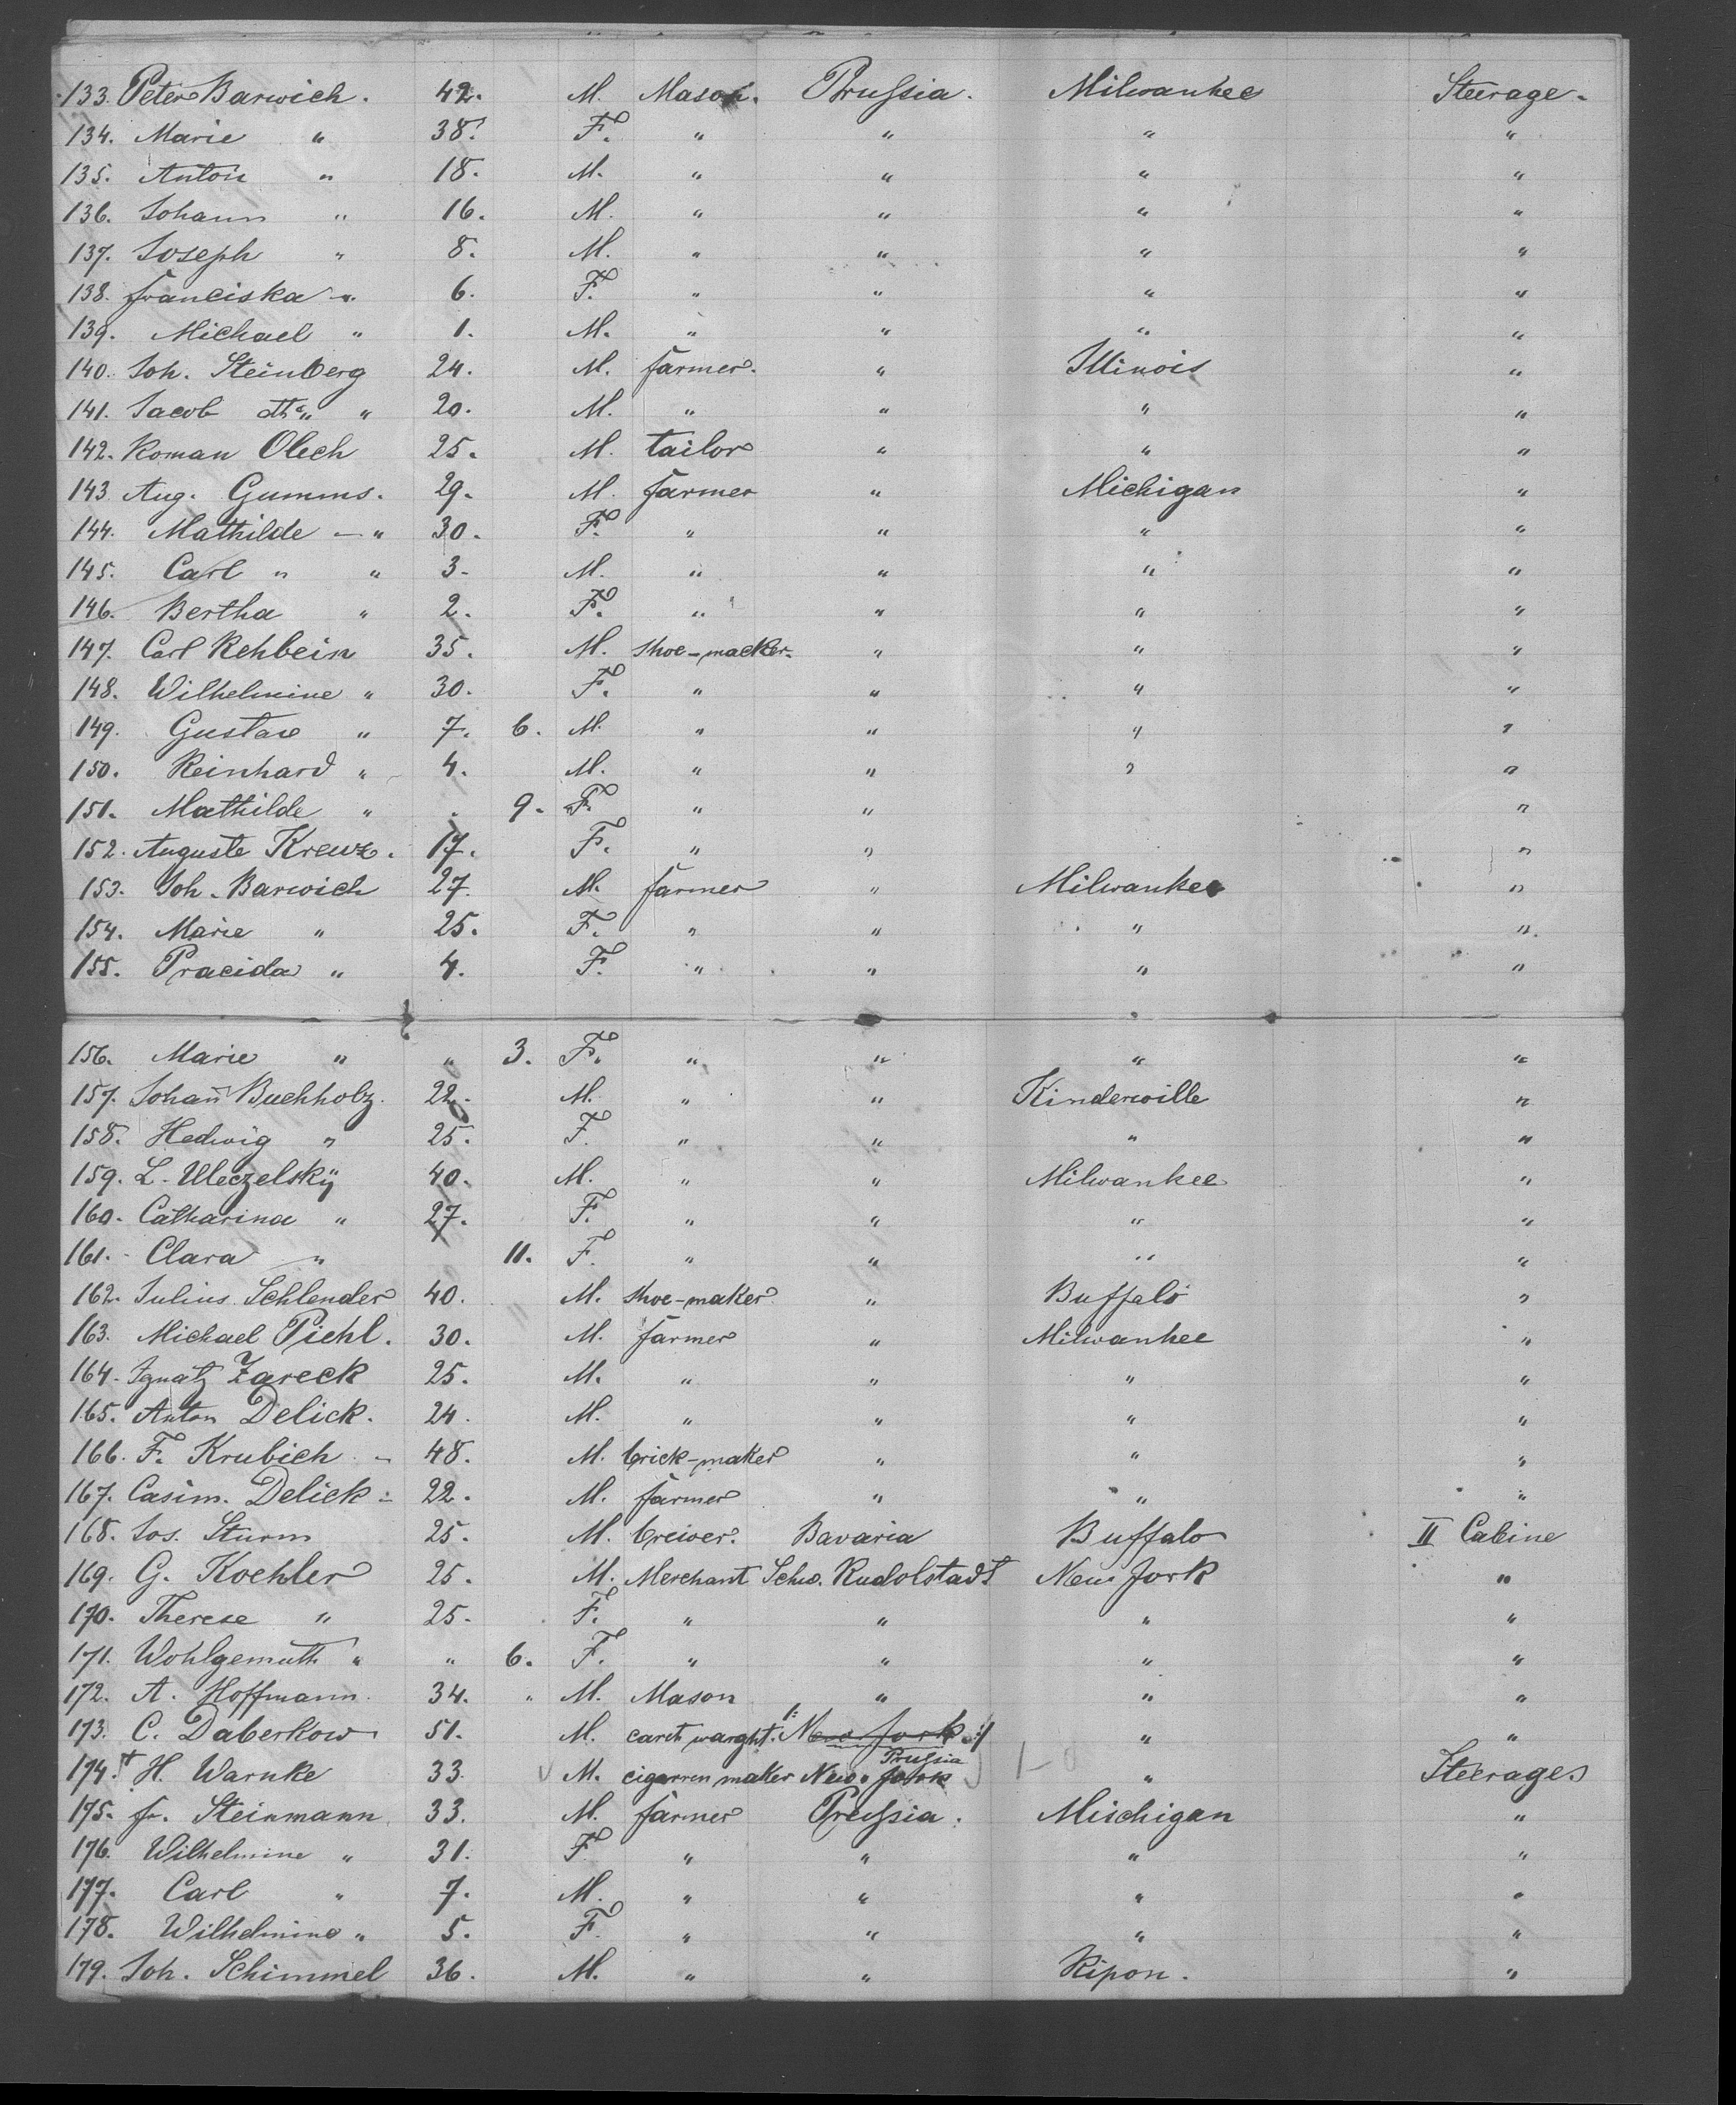 133. Peter Barwich. 42. M. Mason. Prußia. Milwaukee Steerage.
134. Marie " 38. F. " " " "
135. Anton " 18. M. " " " "
136. Johann " 16. M. " " " "
137. Joseph " 8. M. " " " "
138. Franciska " 6. F. " " " "
139. Michael " 1. M. " " " "
140. Joh. Steinberg 24. M. farmer. " Illinois "
141. Jacob " " 20. M. " " " "
142. Roman Olech 25. M. tailor " " "
143 Aug. Gumms. 29. M. farmer " Michigan "
144. Mathilde — " 30. F. " " " "
145. Carl " " 3. M. " " " "
146. Bertha " 2. F. " " " "
147. Carl Rehbein 35. M. shoe-macker. " " "
148. Wilhelmine " 30. F. " " " "
149. Gustav " 7. 6. M. " " " "
150. Reinhard " 4. M. " " " "
151. Mathilde " . 9. F. " " "
152. Auguste Kreuz. 17. F. " " "
153. Joh. Barwich 27. M. farmer " Milwaukee "
154. Marie " 25. F. " " " "
155. Pracida " 4. F. " " " "
156. Marie " " 3. F. " " " "
157. Johañ Buchholz. 22. M. " " Kinderville "
158. Hedwig " 25. F. " " " "
159. L. Uleczelskÿ 40. M. " " Milwaukee "
160. Catharina " 27. F. " " " "
161. Clara " 11. F. " " " "
162. Julius Schlender 40. M. shoe-maker " Buffalo "
163. Michael Piehl. 30. M. farmer " Milwaukee "
164. Ignatz Zareck 25. M. " " " "
165. Anton Delick. 24. M. " " " "
166. F. Krubich 48. M. brick-maker " " "
167. Casim. Delick 22. M. farmer " " "
168. Jos. Sturm 25. M. brewer. Bavaria Buffalo II Cabine
169. G. Koehler 25. M. Merchant Schw. Rudolstadt New York "
170. Therese " 25. F. " " " "
171. Wohlgemuth " " 6. F. " " " "
172. A. Hoffmann. 34. " M. Mason " " "
173. C. Daberkow 51. M. caret waright. /: New York :/ " "
174. + H. Warnke 33. M. cigarren maker New York Prußia " Steerages
175. Fr. Steinmann 33. M. farmer Preußia. Mischigan "
176. Wilhelmine " 31. F " " " "
177. Carl " 7. M. " " " "
178. Wilhelmine " 5. F. " " " "
179. Joh. Schimmel 36. M. " " Ripon. "